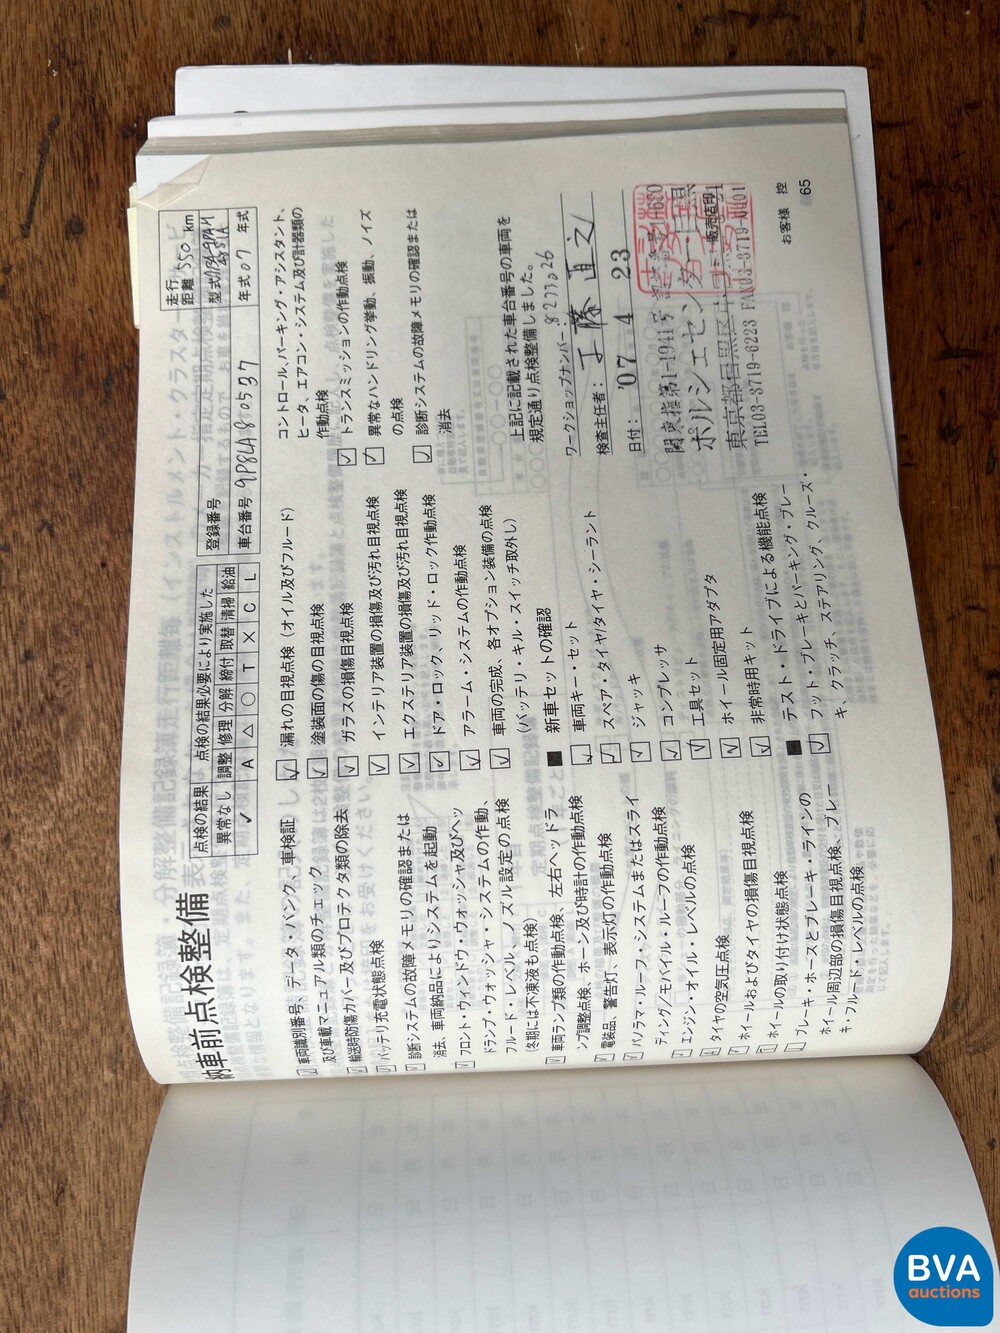 納車前点検整備
点検の結果 点検の結果必要により実施した
異常なし 調整 修理 分解 締付 取替 清掃 給油
✓ A △ ○ T × C L
登録番号
車台番号 9P84L80537
走行距離 550 km
型式
年式 07 年式
車両識別番号、データ・バンク、車検証
及び車載マニュアル類のチェック
輸送時防傷カバー及びプロテクタ類の除去
バッテリ充電状態点検
診断システムの故障メモリの確認または
消去、車両納品によりシステムを起動
フロント・ウィンドウ・ウォッシャ及びヘッ
ドランプ・ウォッシャ・システムの作動、
フルード・レベル、ノズル設定の点検
(冬期には不凍液も点検)
車両ランプ類の作動点検、左右ヘッドラ
ンプ調整点検、ホーン及び時計の作動点検
電装品、警告灯、表示灯の作動点検
パノラマ・ルーフ・システムまたはスライ
ディング/モバイル・ルーフの作動点検
エンジン・オイル・レベルの点検
タイヤの空気圧点検
ホイールおよびタイヤの損傷目視点検
ホイールの取り付け状態点検
ブレーキ・ホースとブレーキ・ラインの
ホイール周辺部の損傷目視点検、ブレー
キ・フルード・レベルの点検
漏れの目視点検(オイル及びフルード)
塗装面の傷の目視点検
ガラスの損傷目視点検
インテリア装置の損傷及び汚れ目視点検
エクステリア装置の損傷及び汚れ目視点検
ドア・ロック、リッド・ロック作動点検
アラーム・システムの作動点検
車両の完成、各オプション装備の点検
(バッテリ・キル・スイッチ取外し)
■ 新車セットの確認
車両キー・セット
スペア・タイヤ/タイヤ・シーラント
ジャッキ
コンプレッサ
工具セット
ホイール固定用アダプタ
非常時用キット
■ テスト・ドライブによる機能点検
フット・ブレーキとパーキング・ブレー
キ、クラッチ、ステアリング、クルーズ・
コントロール、パーキング・アシスタント、
ヒータ、エアコン・システム及び計器類の
作動点検
トランスミッションの作動点検
異常なハンドリング挙動、振動、ノイズ
の点検
診断システムの故障メモリの確認または
消去
上記に記載された車台番号の車両を
規定通り点検整備しました。
ワークショップナンバー: 8273026
検査主任者: 工藤直之
日付: '07 4 23
関東指第1-1941号
ポルシェセンター目黒
東京都目黒区
TEL03-3719-6223 FAX03-3719-8401
販売店印
お客様 控
65
BVA
auctions